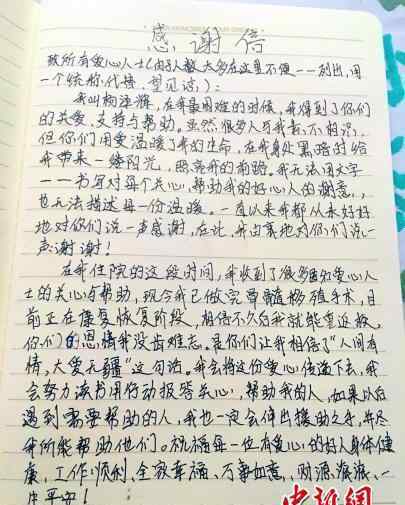 感谢信
致所有爱心人士(由于人数太多在这里不便一一列出,用
一个统称代替,望见谅):
我叫杨泽辉,在我最困难的时候,我得到了你们
的关爱、支持与帮助。虽然,很多人与我素不相识,
但你们用爱温暖了我的生命,在我身处黑暗时给
我带来一缕阳光,照亮我的前路。我无法用文字
一一书写对每个关心、帮助我的好心人的谢意,
也无法描述每一份温暖。一直以来我都从未好好
地对你们说一声感谢,在此,我由衷地对你们说一
声:谢谢!
在我住院的这段时间,我收到了很多爱心人
士的关心与帮助,现今我已做完骨髓移植手术,目
前正在康复恢复阶段,相信不久后我就能重返校,
你们的恩情我没齿难忘。是你们让我相信了“人间有
情,大爱无疆”这句话。我会将这份爱心传递下去,我
会努力读书用行动报答关心,帮助我的人,如果以后
遇到需要帮助的人,我也一定会伸出援助之手,并尽
我所能帮助他们。祝福每一位有爱心的好人身体健
康、工作顺利、全家幸福、万事如意、财源滚滚、一
生平安!
中新网